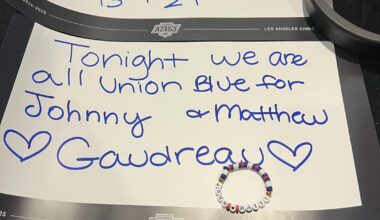 13 + 21
2024-2025
KINGS
LOS ANGELES KINGS
Tonight we are
all union Blue for
Johnny & Matthew
Gaudreau